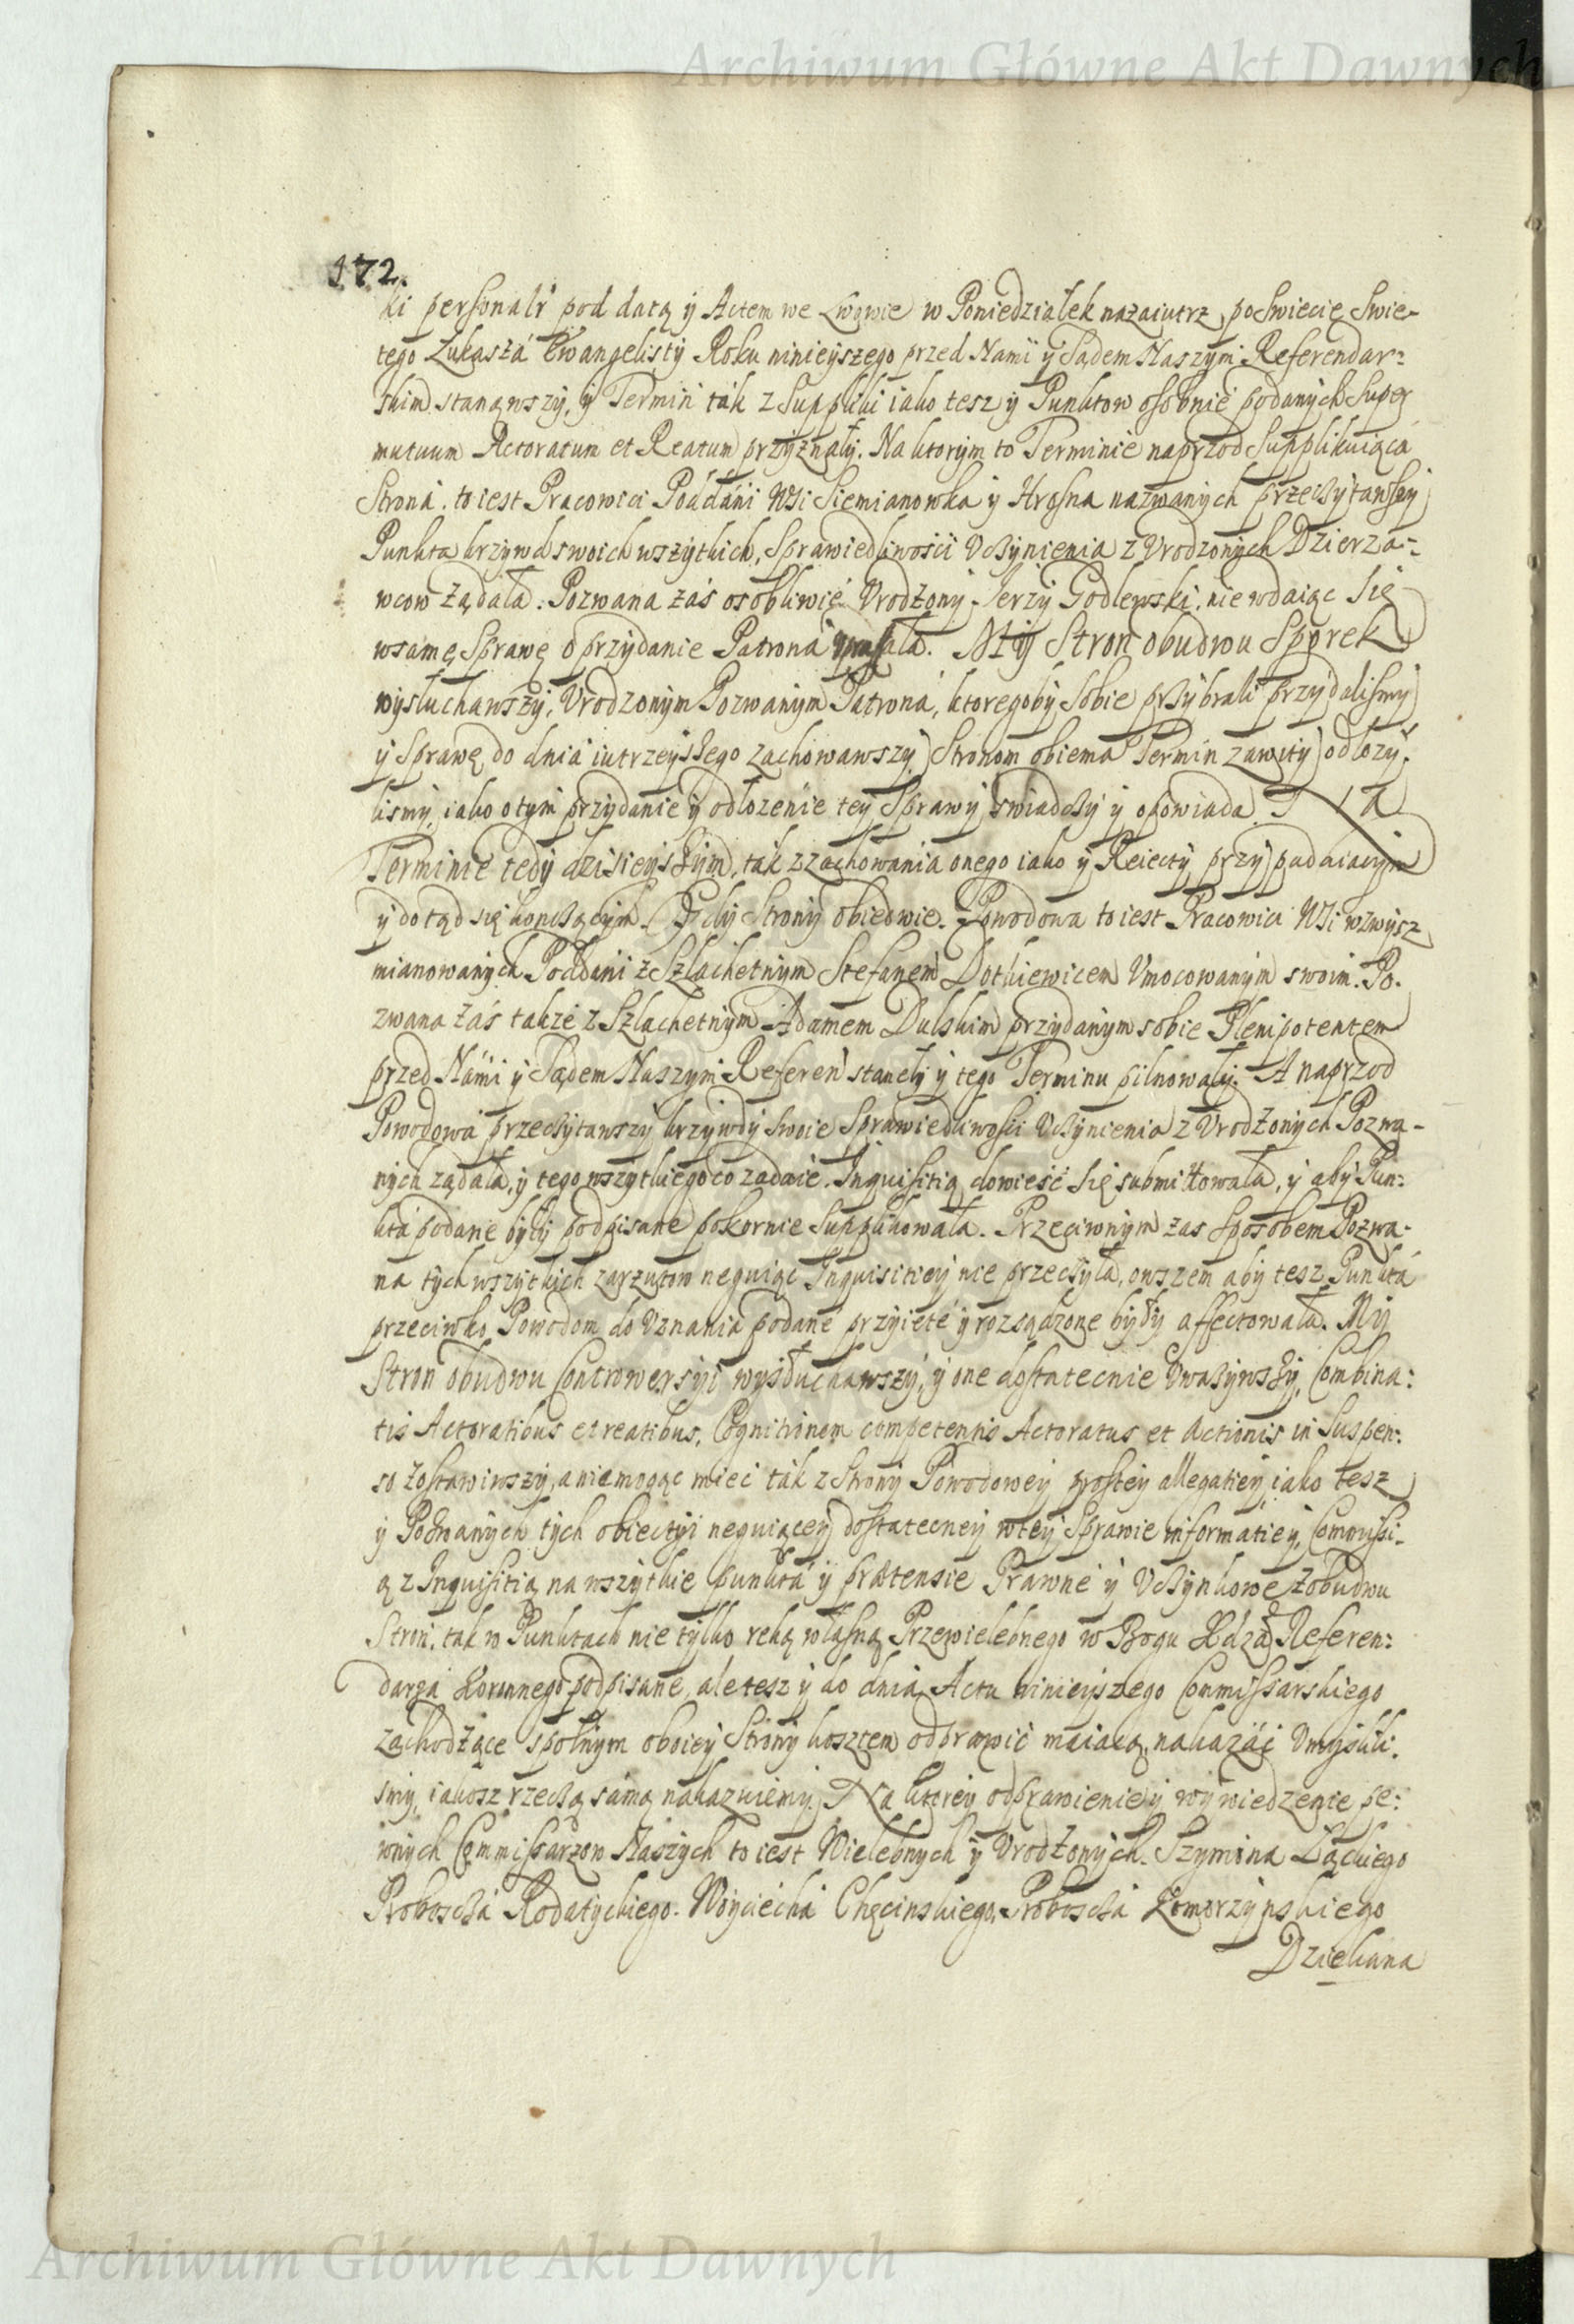 Archiwum Główne Akt Dawnych
172.
ki personalr pod datą y Actem we Lwowie w Poniedziałek nazaiutrz po Swiecie Swie-
tego Łukasza Ewangelisty Roku ninieyszego przed Nami y Sądem Naszym Referendar-
skim stanąwszy, y Termin tak z Suppliki iako tesz y Punktow osobnie podanych Super
mutuum Actoratum et Reatum przyznały. Na ktorym to Terminie naprzod Supplikuiąca
Strona. to iest Pracowici Poddani Wsi Siemianowka y Hrosna nazwanych przeczytawszy
Punkta krzywd swoich wszytkich, Sprawiedliwości Vczynienia z Vrodzonych Dzierza-
wcow żądała. Pozwana zaś osobliwie Vrodzony Jerzy Godlewski. nie wdaiąc się
w samę Sprawę o przydanie Patrona . My Stron obudwu Sporek
wysłuchawszy, Vrodzonym Pozwanym Patrona, ktoregoby sobie przybrali przydalismy
y Sprawę do dnia iutrzeyszego zachowawszy Stronom obiema Termin zawity odłozy-
lismy, iako o tym przydanie y odłozenie tey Sprawy swiadczy y opowiada. Na
Terminie tedy dzisieyszym, tak z zachowania onego iako y Reiecty przypadaiącym
y dotąd się kończącym. Gdy Strony obiedwie. Powodowa to iest Pracowici Wsi wzwysz
mianowanych Poddani z Szlachetnym Stefanem Dotkiewicem Vmocowanym swoim. Po-
zwana zaś takze z Szlachetnym Adamem Dulskim przydanym sobie Plenipotentem
przed Nami y Sądem Naszym Referen stanely y tego Terminu pilnowały. A naprzod
Powodowa przeczytawszy krzywdy swoie Sprawiedliwości Vczynienia z Vrodzonych Pozwa-
nych ządała, y tego wszytkiego co zadaie. Inquisitią dowieść się submittowała, y aby Pun-
kta podane były podpisane pokornie Supplikowała. Przeciwnym zas Sposobem Pozwa-
na tych wszytkich zarzutow neguiąc Inquisitiey nie przeczyła, owszem aby tesz Punkta
przeciwko Powodom do Vznania podane przyiete y rozsądzone były affectowała. My
Stron obudwu Controwersyi wysłuchawszy, y one dostatecnie Vwazywszy, Combina-
tis Actoratibus et reatibus, Cognitionem competentis Actoratus et Actionis in Suspen-
so zostawiwszy, a niemogąc mieć tak z Strony Powodowey prostey allegatiey iako tesz
y Pozwanych tych obiectyi neguiącey dostatecney w tey Sprawie informatiey, Commissi-
ą z Inquisitią na wszytkie punkta y prætensie Prawne y Vczynkowe z obudwu
Stron, tak w Punktach nie tylko ręką własną Przewielebnego w Bogu Xdza Referen-
darza Koronnego podpisane, ale tesz y do dnia Actu ninieyszego Commissarskiego
zachodzące spolnym oboiey Strony kosztem odprawić maiącą, nakazać Vmyslili-
smy, iakosz rzeczą samą nakazuiemy. Na ktorey odprawienie y wywiedzenie pe-
wnych Commissarzow Naszych to iest Wielebnych y Vrodzonych. Szymona Łąckiego
Proboscza Rodatyckiego. Woyciecha Chęcinskiego, Proboscza Komorzynskiego
Dziekana
Archiwum Główne Akt Dawnych